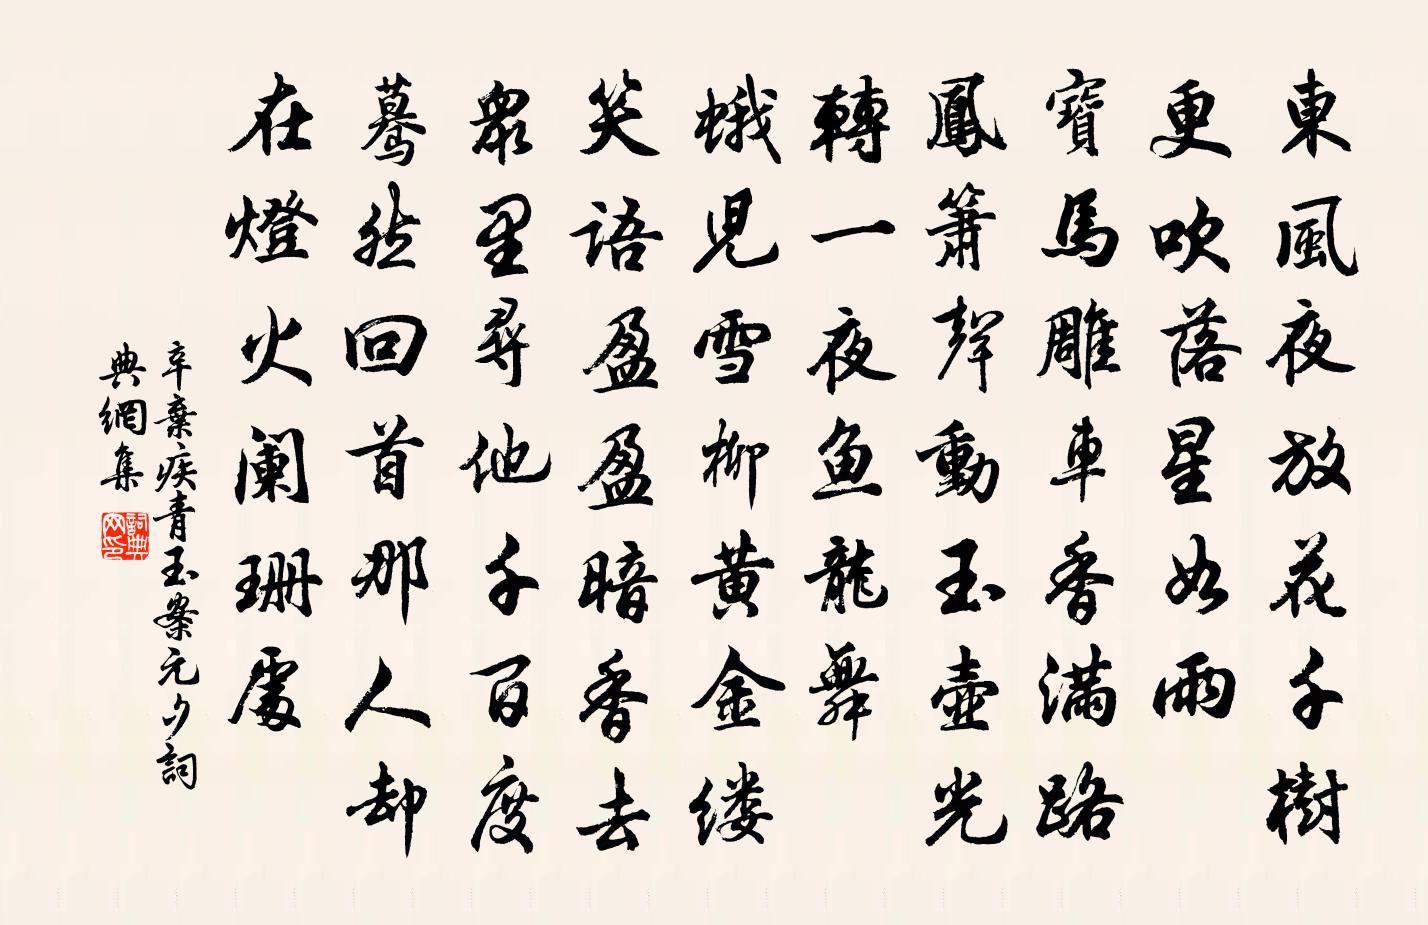 東風夜放花千樹
更吹落星如雨
寶馬雕車香滿路
鳳簫聲動玉壺光
轉一夜魚龍舞
蛾児雪柳黃金缕
笑語盈盈暗香去
眾里尋他千百度
驀然回首那人却
在燈火阑珊處
辛棄疾青玉案元夕詞
典網集
詞典網印